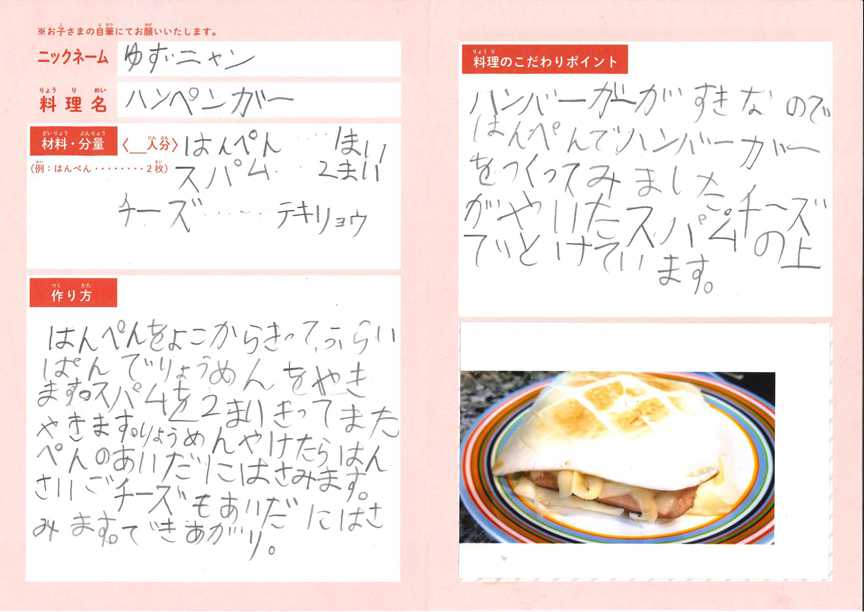 ※お子さまの自筆にてお願いいたします。
ニックネーム ゆずニャン
料理名 ハンペンガー
材料・分量 〈__人分〉 はんぺん ・・・ 1まい
(例:はんぺん・・・・・・・・2枚) スパム ・・・ 2まい
チーズ ・・・・・ テキリョウ
作り方
はんぺんをよこからきって、ふらい
ぱんでりょうめんをやき
ます。スパムを2まいきってまた
やきます。りょうめんやけたらはん
ぺんのあいだにはさみます。
さいごチーズもあいだにはさ
みます。できあがり。
料理のこだわりポイント
ハンバーガーがすきなので
はんぺんでハンバーガー
をつくってみました。
がやいたスパムの上
でとけています。
チーズ